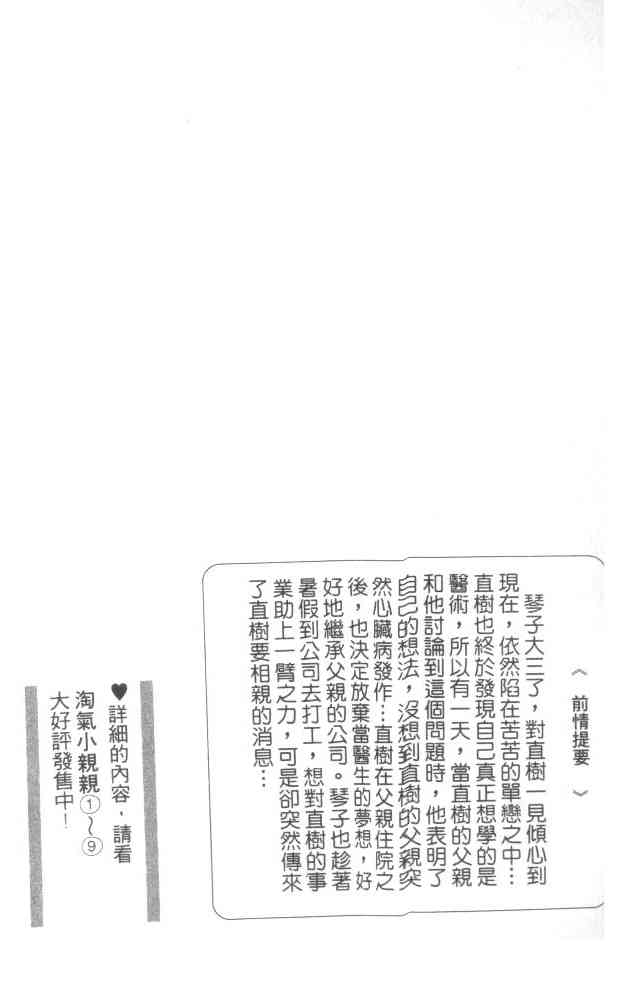 《 前情提要 》
琴子大三了，對直樹一見傾心到
現在，依然陷在苦苦的單戀之中…
直樹也終於發現自己真正想學的是
醫術，所以有一天，當直樹的父親
和他討論到這個問題時，他表明了
自己的想法，沒想到直樹的父親突
然心臟病發作…直樹在父親住院之
後，也決定放棄當醫生的夢想，好
好地繼承父親的公司。琴子也趁著
暑假到公司去打工，想對直樹的事
業助上一臂之力，可是卻突然傳來
了直樹要相親的消息…
♥詳細的內容，請看
淘氣小親親①～⑨
大好評發售中！